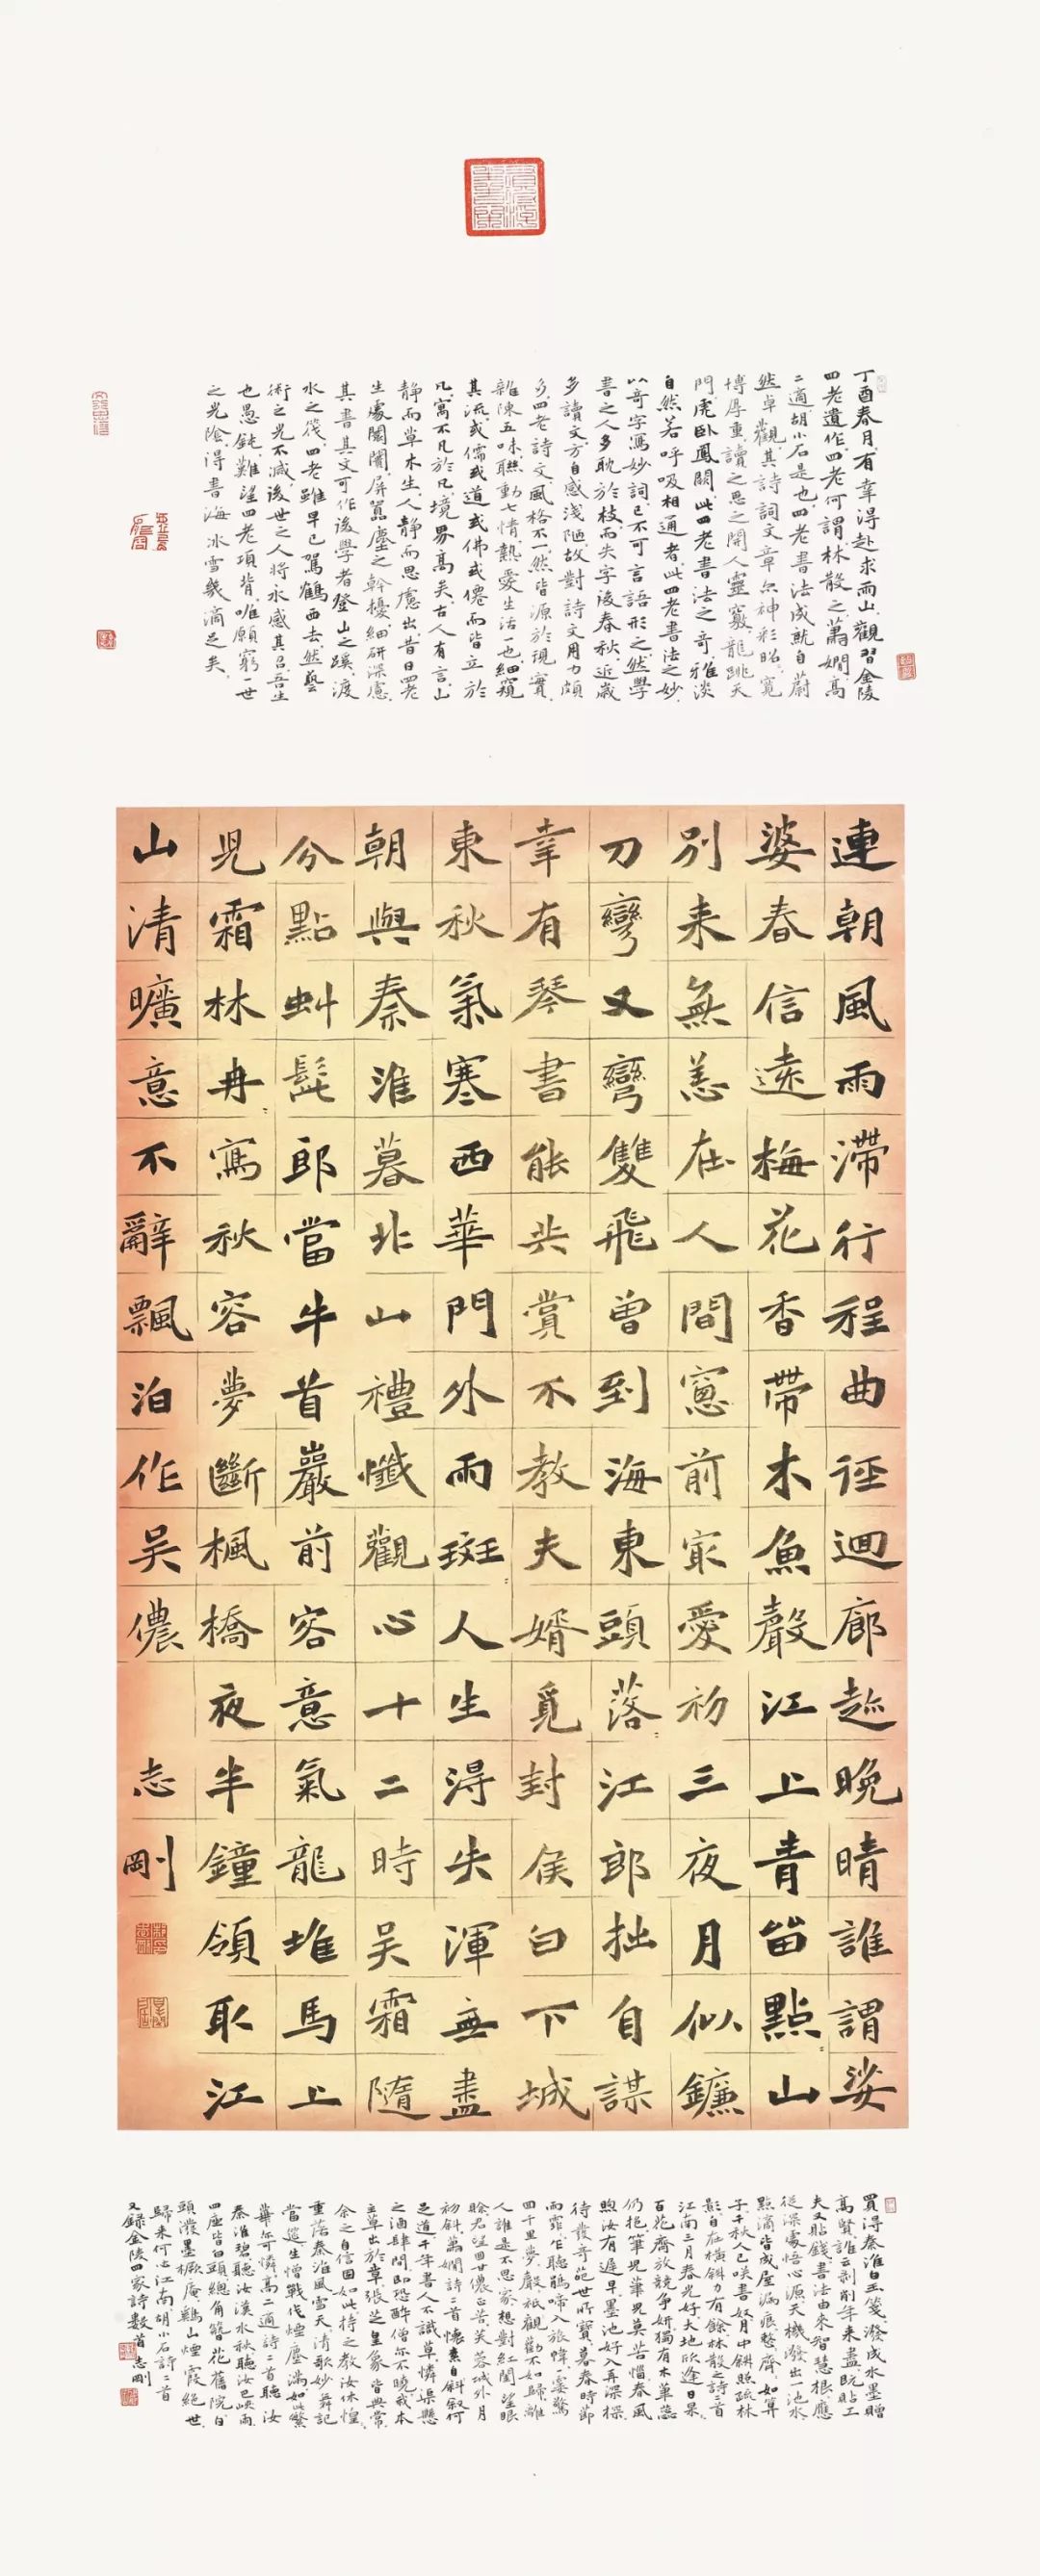 丁酉春月有幸得赴求雨山觀習金陵
四老遺作四老何謂林散之蕭嫻高
二適胡小石是也四老書法成就自蔚
然卓觀其詩詞文章尔神彩昭寬
博厚重讀之思之開人靈竅龍跳天
門虎卧鳳闕此四老書法之奇雅淡
自然若呼吸相通者此四老書法之妙
以奇字馮妙詞已不可言語形之然學
書之人多耽於枝而失字後春秋近歲
多讀文方自感淺陋故對詩文用力頗
多四老詩文風格不一然皆源於現實
雜陳五味聯動七情熱愛生活一也細窺
其流或儒或道或佛或僊而皆立於
凡寓不凡於凡境界高矣古人有言山
静而草木生人静而思慮出昔日四老
生處闤闠屏囂塵之幹擾細研深慮
其書其文可作後學者登山之蹊渡
水之筏四老雖早已駕鶴西去然藝
術之光不減後世之人將永感其吕吾生
也愚鈍難望四老項背唯願窮一世
之光陰得書海冰雪幾滴足矣
連朝風雨滯行程曲徑迴廊趂晚晴誰謂娑
婆春信遠梅花香帶木魚聲江上青笛點山
別来無恙在人間窻前㝡愛初三夜月似鐮
刀彎又彎雙飛曾到海東頭落江郎拙自謀
幸有琴書能共賞不教夫婿覓封侯白下城
東秋氣寒西華門外雨斑人生得失渾無盡
朝與秦淮暮北山禮懺觀心十二時吴霜隨
分點虯髭郎當牛首巖前容意氣龍堆馬上
児霜林冉寫秋容夢斷楓橋夜半鐘領取江
山清曠意不辭飄泊作吴儂
志剛
買得秦淮白玉箋潑成水墨贈
高賢誰云剥削年来盡既貼工
夫又貼錢書法由來智慧根應
從深處悟心源天機潑出一池水
點滴皆成屋漏痕整齊如算
子千秋人已咲書奴月中斜照疏林
影自在橫斜力有餘林散之詩三首
江南三月春光好大地欣逢日杲
百花齊放競争妍獨有木筆蕊
仍抱筆児筆児莫苦惱春風
煦汝有遲早墨池好入再深操
待發奇葩世所寶暮春時節
雨霏乍聽鵑啼入旅幃一屢驚
四千里夢嚴祇觀勸不如歸離
人誰是不思家想對紅闌望眼
賒君望回廿儂正黄芙蓉城外月
初斜蕭嫻詩二首懷素自叙何
足道千年書人不識草憐渠懸
之酒肆間即恐醉僧尔不曉我本
主草出於章張芝皇象當典常
余之自信固如此持之教汝休惶
重蕩秦淮風雪天清歌妙舞記
當筵生憎戰伐煙塵滿如此繁
華尔可憐高二適詩二首聽汝
秦淮碧聽汝溪水秋聽汝已峽雨
四座皆白頭總角簪花舊院白
頭潑墨橛庵鷄山煙霞絶世
歸来何必江南胡小石詩二首
又録金陵四家詩數首志剛